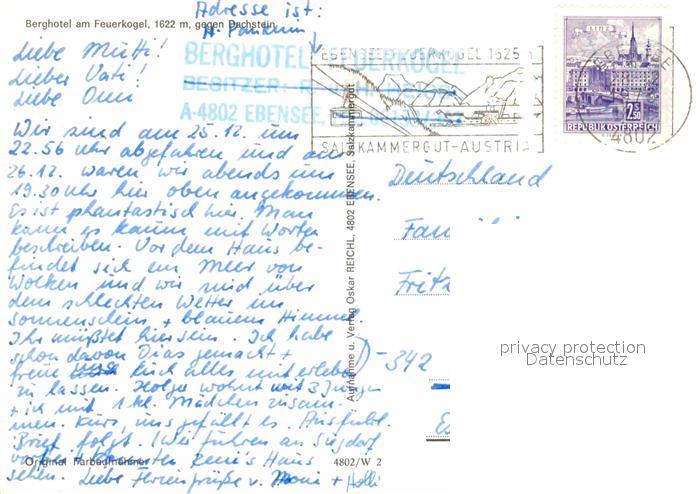 Adresse ist:
Berghotel am Feuerkogel, 1622 m, gegen Dachstein
BERGHOTEL FEUERKOGEL
BESITZER:
A-4802 EBENSEE,
EBENSEE FEUERKOGEL 1625
SALZKAMMERGUT-AUSTRIA
LINZ
2S50
REPUBLIK ÖSTERREICH
EBENSEE
4802
Liebe Mutti!
Lieber Vati!
Liebe Omi
Wir sind am 25.12. um
22.56 Uhr abgefahren und am
26.12. waren wir abends um
19.30 Uhr hier oben angekommen.
Es ist phantastisch hier. Man
kann es kaum mit Worten
beschreiben. Vor dem Haus be-
findet sich ein Meer von
Wolken und wir sind über
dem schlechten Wetter im
Sonnenschein + blauem Himmel.
Ihr müßtet hier sein. Ich habe
schon davon Dias gemacht +
freue Euch alles miterleben
zu lassen. Holger wohnt mit 3 Jungen
+ ich mit 1 kl. Mädchen zusam-
men. Kurz, uns gefällt es. Ausführl.
Brief folgt. (Wir fuhren an Siegsdorf
vorbei + konnten Haus
sehen. Liebe Herzensgrüße v. +
Original Farbaufnahme
4802/W 2
Aufnahme u. Verlag Oskar REICHL, 4802 EBENSEE, Salzkammergut
Deutschland
Fam
Fritz
D-342
privacy protection
Datenschutz